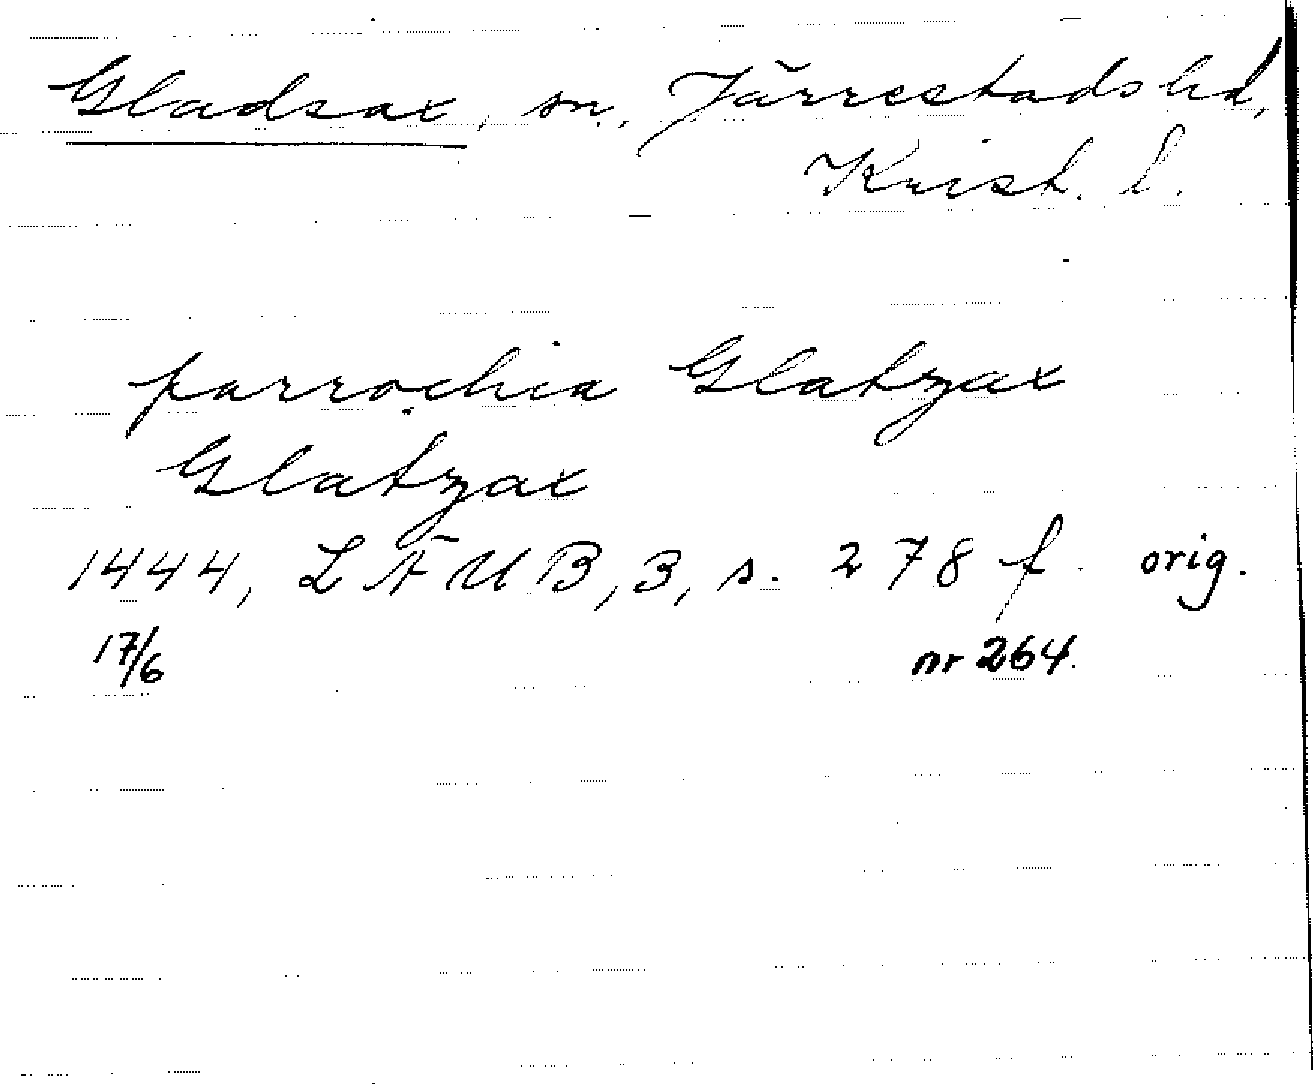 Gladsax, sn, Järrestads hd,
Krist. l.
parrochia Glatzax
Glatzax
1444, LÄUB, 3, s. 278 f. orig.
17/6 nr 264.